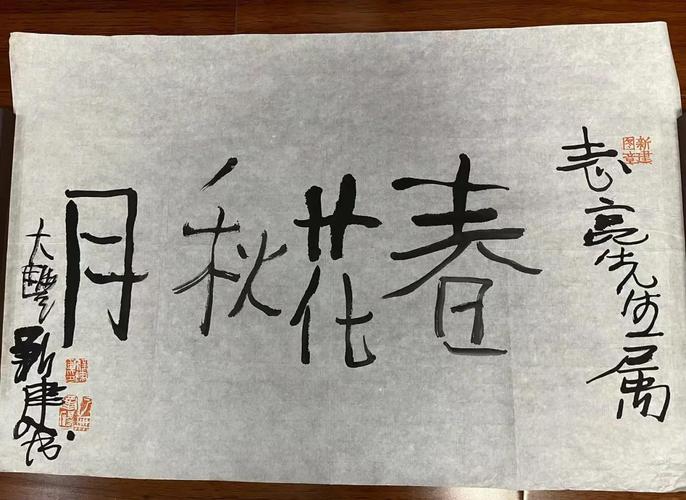 志亮先生属
新建
图章
春花秋月
大丰新建书